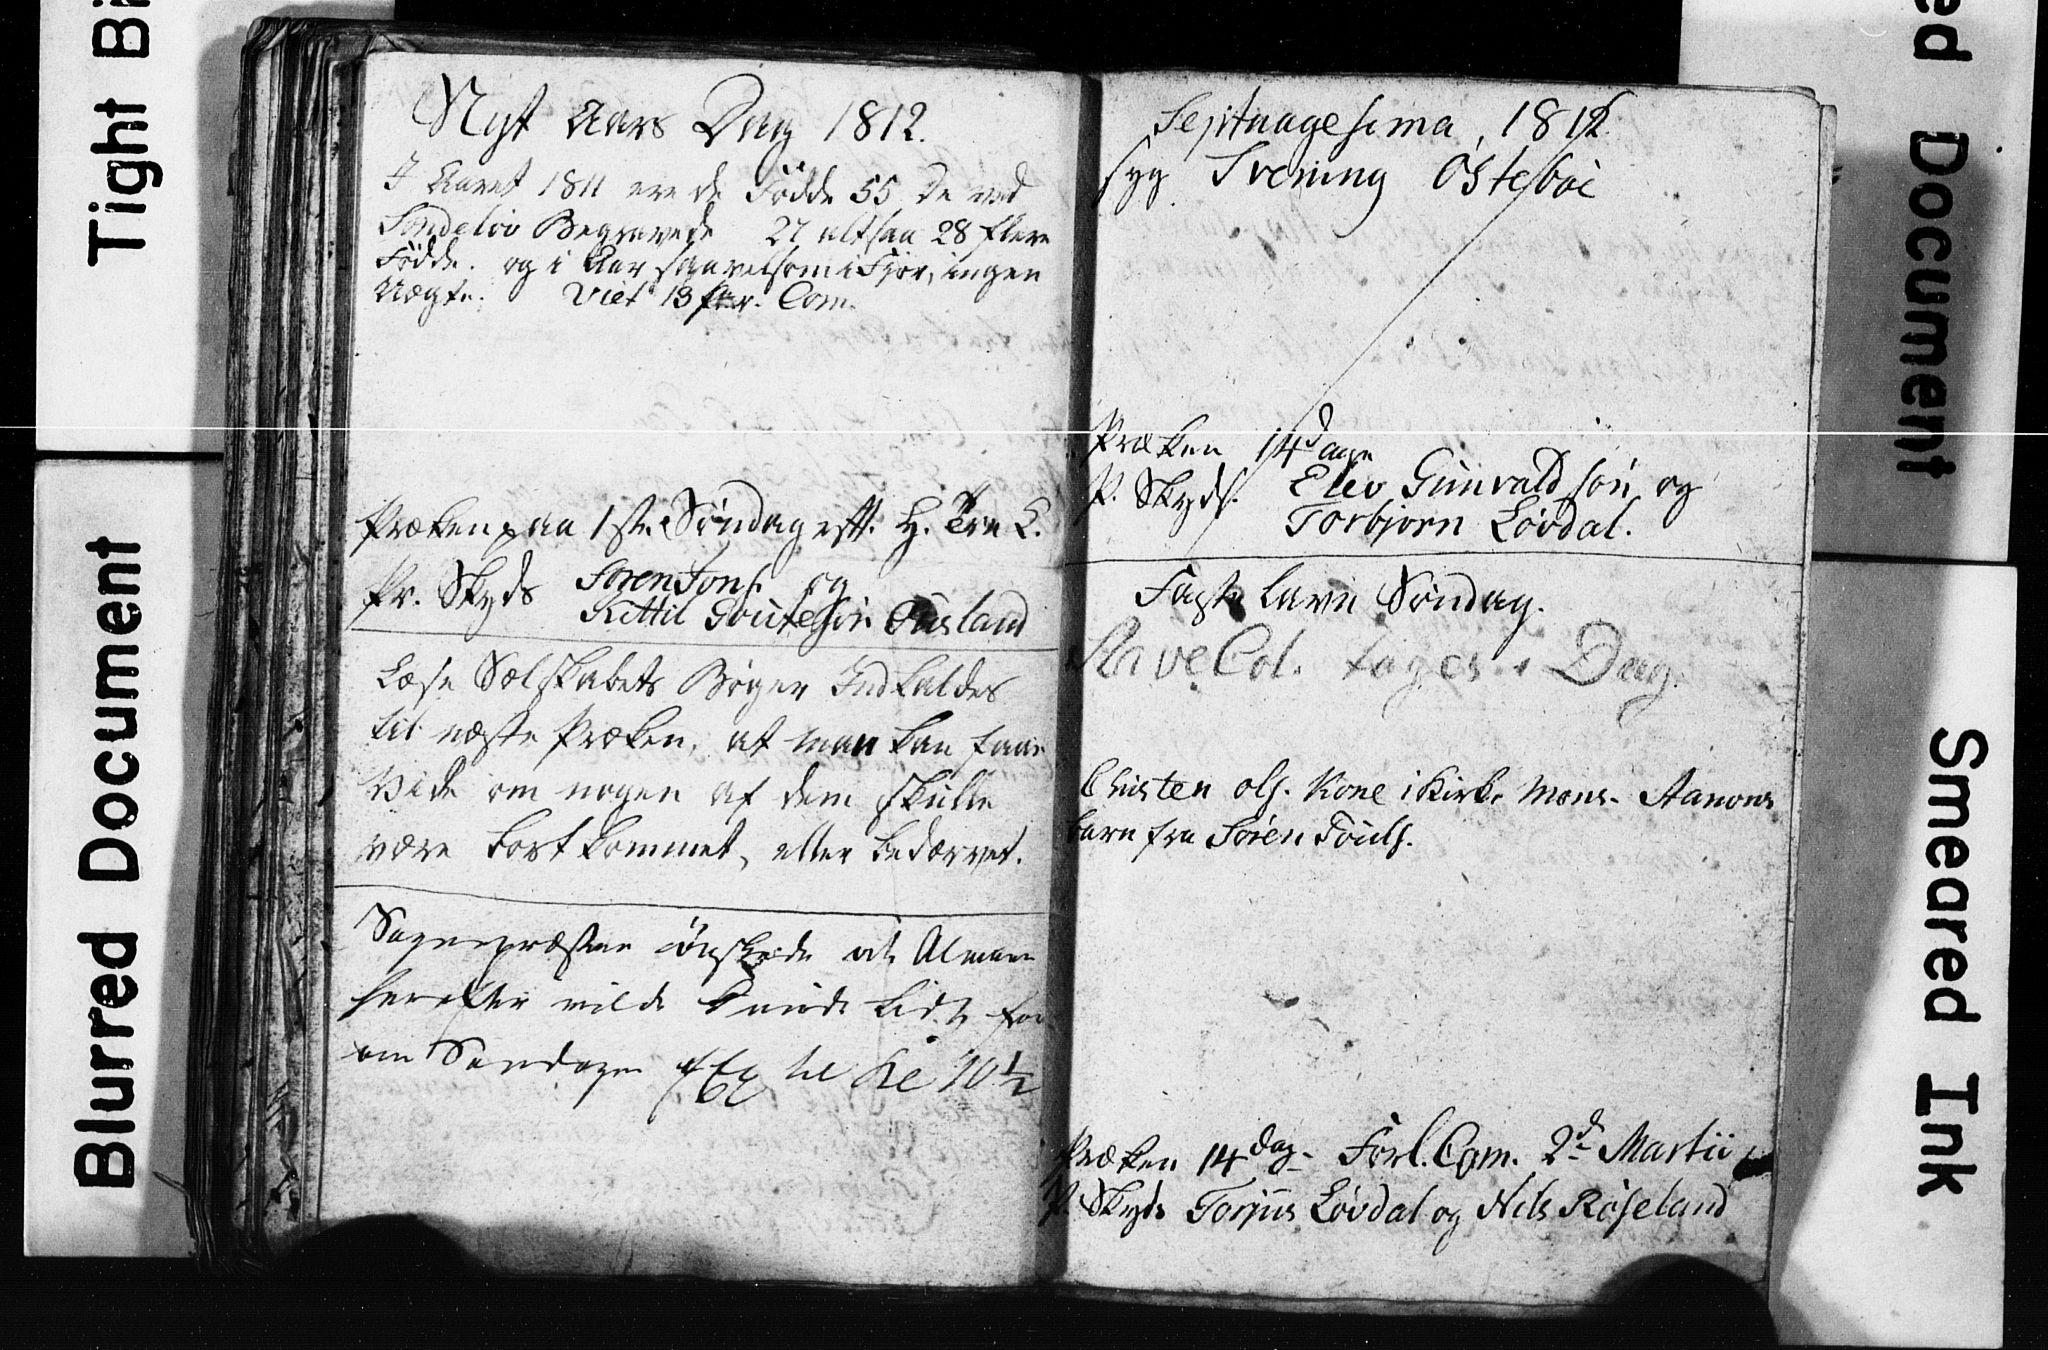 Tight Bi
Blurred Document
Nyt Aars Dag 1812.
I Aaret 1811 ere de Fødde 55 De ved
Søndeløv Begravede 27 altsaa 28 flere
Fødde. og i Aar saavelsom i Fjor, ingen
Uægte. Viet 13 Com.
Præken paa 1ste Søndag eft. H. Tre K.
Pr. Skyds Søren Jons. og
Kittil Goutesøn
Læse Selskabets Bøger Indkaldes
til næste Præken, at man kan faae
Vide om nogen af dem skulle
være bortkommet, eller bedærvet.
Sognepræsten ønskede at Almuen
herefter vilde komme lidt før
om Søndagen til Kl 10½
Septuagesima, 1812
syg. Svening Østebøe
Præken 14 dage
P. Skyds. Elev Gunvaldsøn og
Torbjørn Løvdal.
Faste lavn Søndag.
Slave Col. tages i Dag.
Christen Ols. Kone i Kirke Mons. Aanons
barn fra Søren
Præken 14 dag. Forl. Com. 2d Martii
P. Skyds Torjus Løvdal og Nils Røseland
ed Document
Smeared Ink